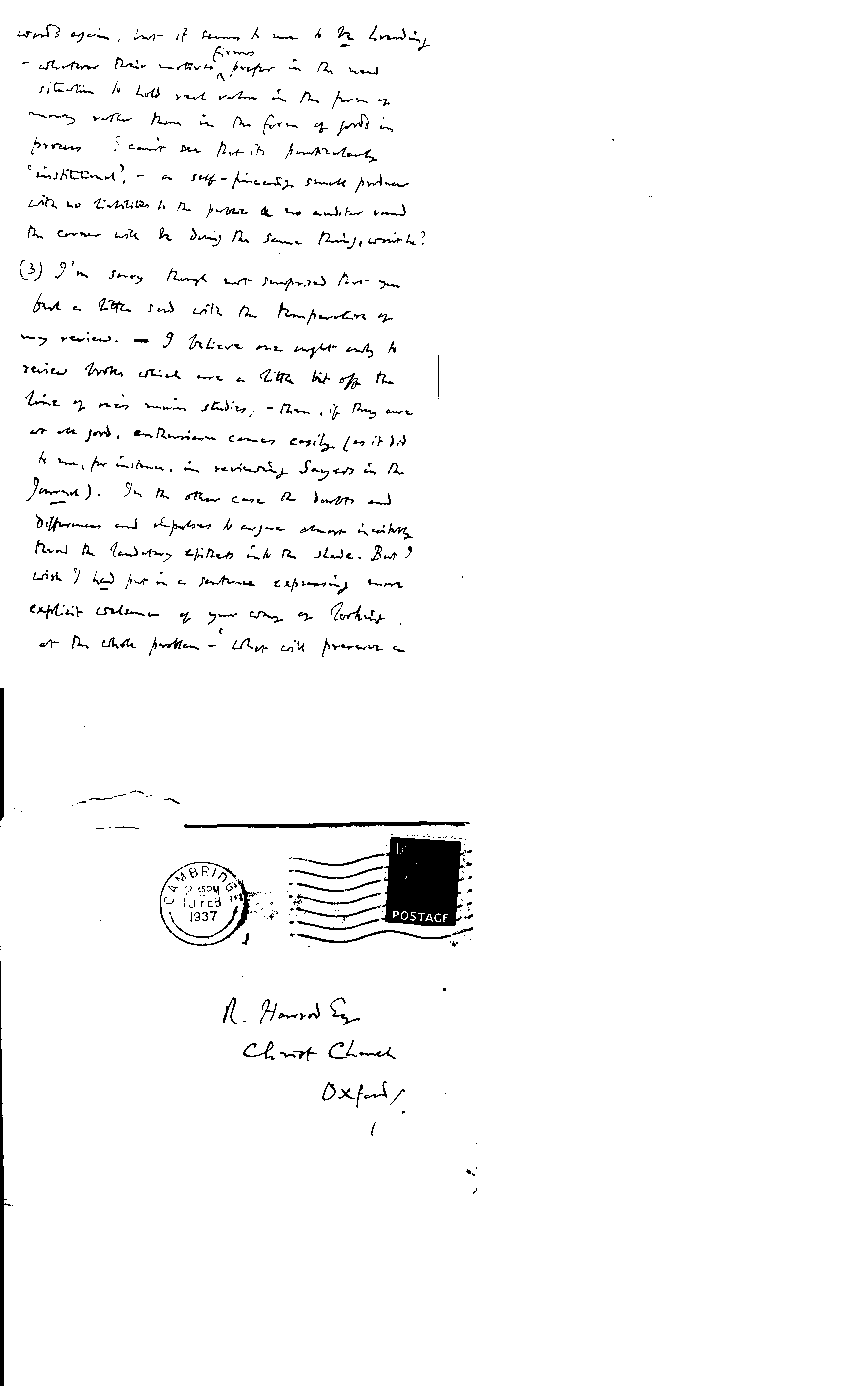 words again, but it seems to me to be hoarding
- whatever their motives firms prefer in the new
situation to hold real value in the form of
money rather than in the form of goods in
process. I can't see that it's particularly
'institutional', - a self-financing small producer
with no liabilities to the public & no auditor round
the corner will be doing the same thing, won't he?
(3) I'm sorry though not surprised that you
feel a little sad with the temperature of
my review. – I believe one ought only to
review books which are a little bit off the
line of one's main studies, - then, if they are
at all good, enthusiasm comes easily (as it did
to me, for instance, in reviewing Sayers in the
Journal). In the other case the doubts and
differences and impulses to argue almost inevitably
throw the laudatory epithets into the shade. But I
wish I had put in a sentence expressing more
explicit welcome of your way of looking
at the whole problem - 'what will preserve a
CAMBRIDGE
PM
FEB
1937
POSTAGE
R. Harrod Esq
Christ Church
Oxford